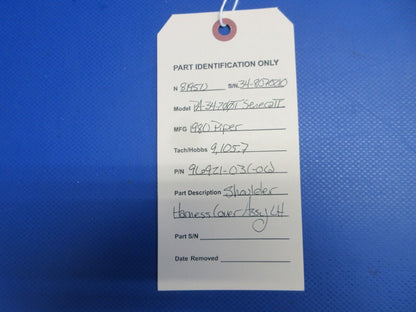 PART IDENTIFICATION ONLY
N 8195U S/N 34-8070010
Model PA-34-200T Seneca II
MFG 1980 Piper
Tach/Hobbs 9,105.7
P/N 96921-03(-06)
Part Description Shoulder
Harness Cover Assy LH
Part S/N
Date Removed